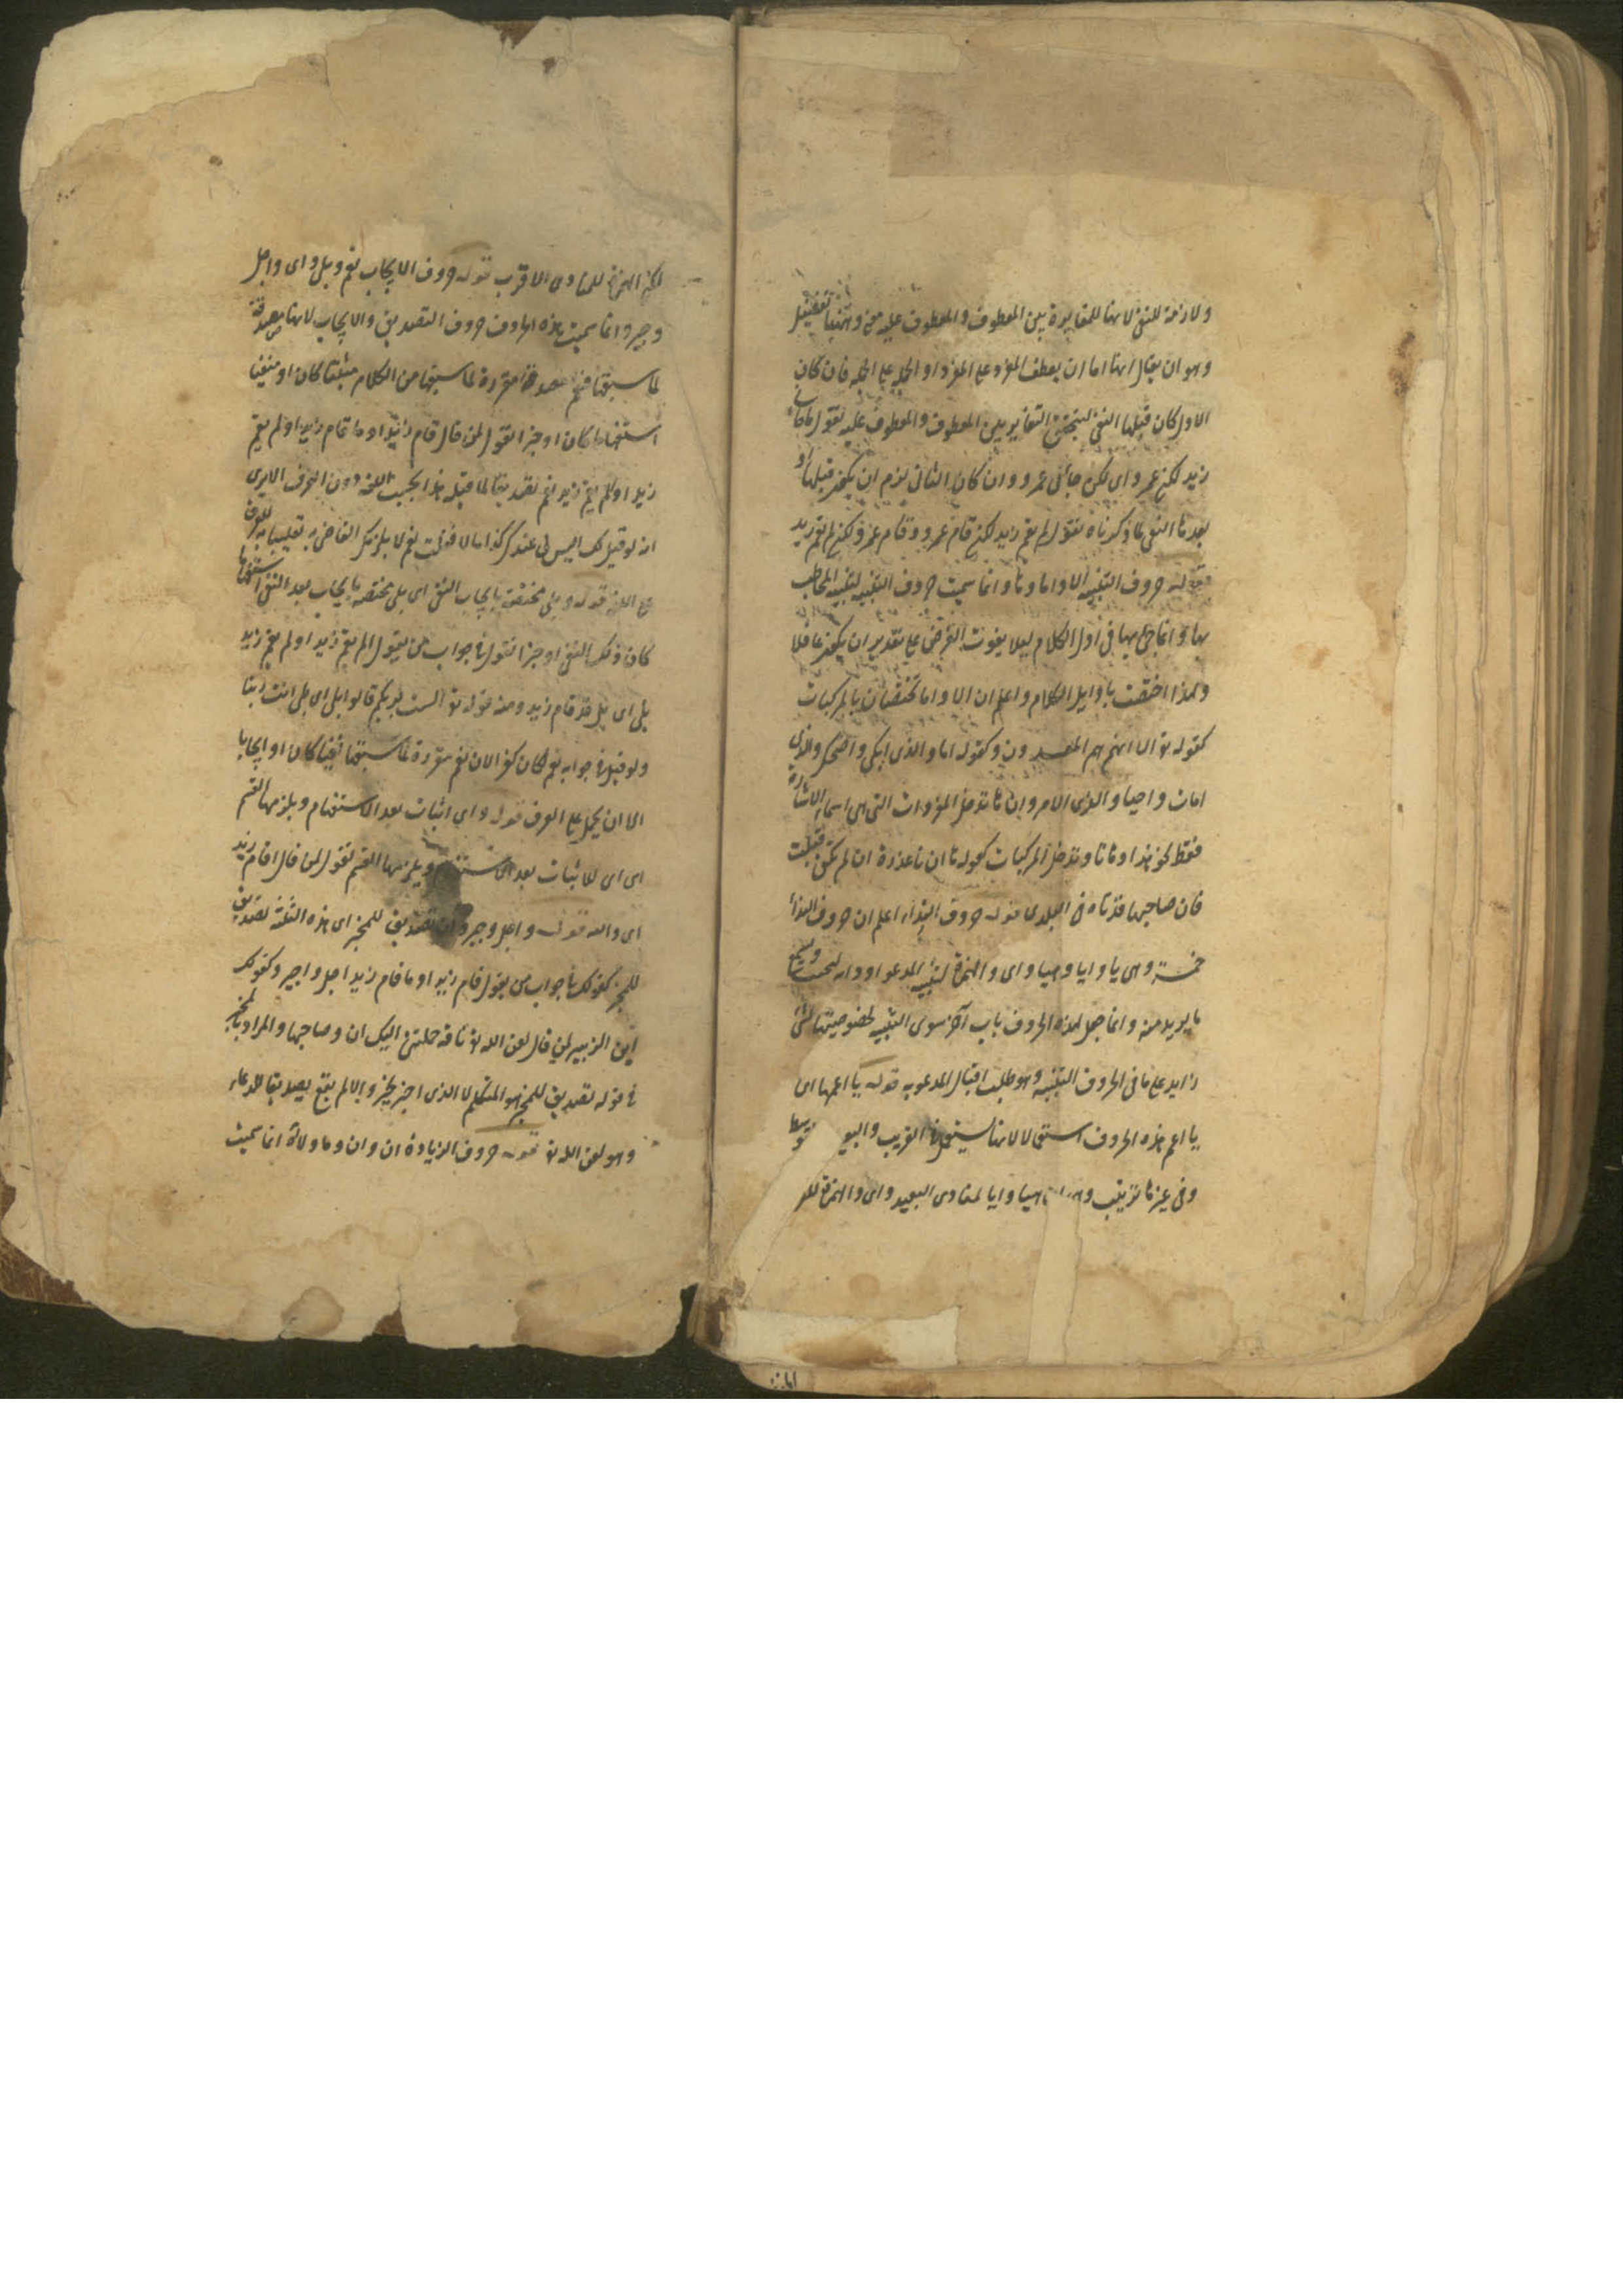 ولازمة للنفى لانها للمغايرة بين المعطوف والمعطوف عليه معنى وههنا تفصيل
وهو ان يقال انها اما ان يعطف المفرد على المفرد او الجملة على الجملة فان كان
الاول كان قبلها النفى ليتحقق التغاير بين المعطوف والمعطوف عليه نقول ما جاءنى
زيد لكن عمرو اى لكن جاءنى عمرو وان كان الثانى لزم ان يكون قبلها او
بعدها النفى لما ذكرناه نقول لم يقم زيد لكن قام عمرو وقام عمرو لكن لم يقم زيد
قوله حروف التنبيه الا واما وها وانما سميت حروف التنبيه لتنبيه المخاطب
بها وانما جئ بها فى اول الكلام ليلا يفوت الغرض على تقدير ان يكون غافلا
ولهذا اختصت باوايل الكلام واعلم ان الا واما تختصان بالمركبات
كقوله تع الا انهم هم المفسدون وكقوله اما والذى ابكى واضحك والذى
امات واحيا والذى امره الامر وان ها تدخل المفردات التى هى اسماء الاشارة
فقط نحو هذا وهاتا وتدخل المركبات كقوله ها ان تا عذرة ان لم تكن قبلت
فان صاحبها قد تاه فى البلد قوله حروف النداء اعلم ان حروف النداء
خمسة وهى يا وايا وهيا واى والهمزة لتنبيه المدعو
ما يريد منه وانما جعل لهذه الحروف باب آخر سوى التنبيه لخصوصيتها
زايد على ما فى الحروف التنبيه وهو طلب اقبال المدعو به قوله يا اعمها اى
يا اعم هذه الحروف استعمالا لانها يستعمل فى القريب والبعيد
وفى غيرها ترتيب هيا وايا لمنادى البعيد واى والهمزة
لكن الهمزة للمنادى الاقرب قوله حروف الايجاب نعم وبلى واى واجل
وجير وانما سميت هذه الحروف حروف التصديق والايجاب لانها مصدقة
لما سبقها فنعم مقررة لما سبقها من الكلام مثبتا كان او منفيا
استفهاما كان او خبرا تقول لمن قال قام زيد او ما قام زيد او لم يقم
زيد او الم يقم زيد نعم تصديقا لما قبله هذا بحسب اللغة دون العرف الا يرى
انه لو قيل لك اليس لى عندك كذا مالا فقلت نعم لا يلزمك القاضى به تغليبا للعرف
على اللغة قوله وبلى مختصة بايجاب النفى اى بلى مختصة بايجاب بعد النفى استفهاما
كان ذلك النفى او خبرا تقول فى جواب من يقول الم يقم زيد او لم يقم زيد
بلى اى بلى قد قام زيد ومنه قوله تع الست بربكم قالوا بلى اى بلى انت ربنا
ولو قيل فى جوابه نعم لكان كفرا لان نعم مقررة لما سبقها نفيا كان او ايجابا
الا ان يحمل على العرف قوله واى اثبات بعد الاستفهام ويلزمها القسم
اى اى للاثبات بعد الاستفهام ويلزمها القسم تقول لمن قال اقام زيد
اى والله قوله واجل وجير وان تصديق للمخبر اى هذه الثلثة تصديق
للمخبر كقولك فى جواب من يقول قام زيد او ما قام زيد اجل واجير وكقولك
ابن الزبير لمن قال لعن الله ناقة حملتنى اليك ان وصاحبها والمراد بالمخبر
فى قوله تصديق للمخبر هو المتكلم لا الذى اخبر بخبر والا لم يقع تصديقا للدعاء
وهو لعن الله تع قوله حروف الزيادة ان وان وما ولا انما سميت